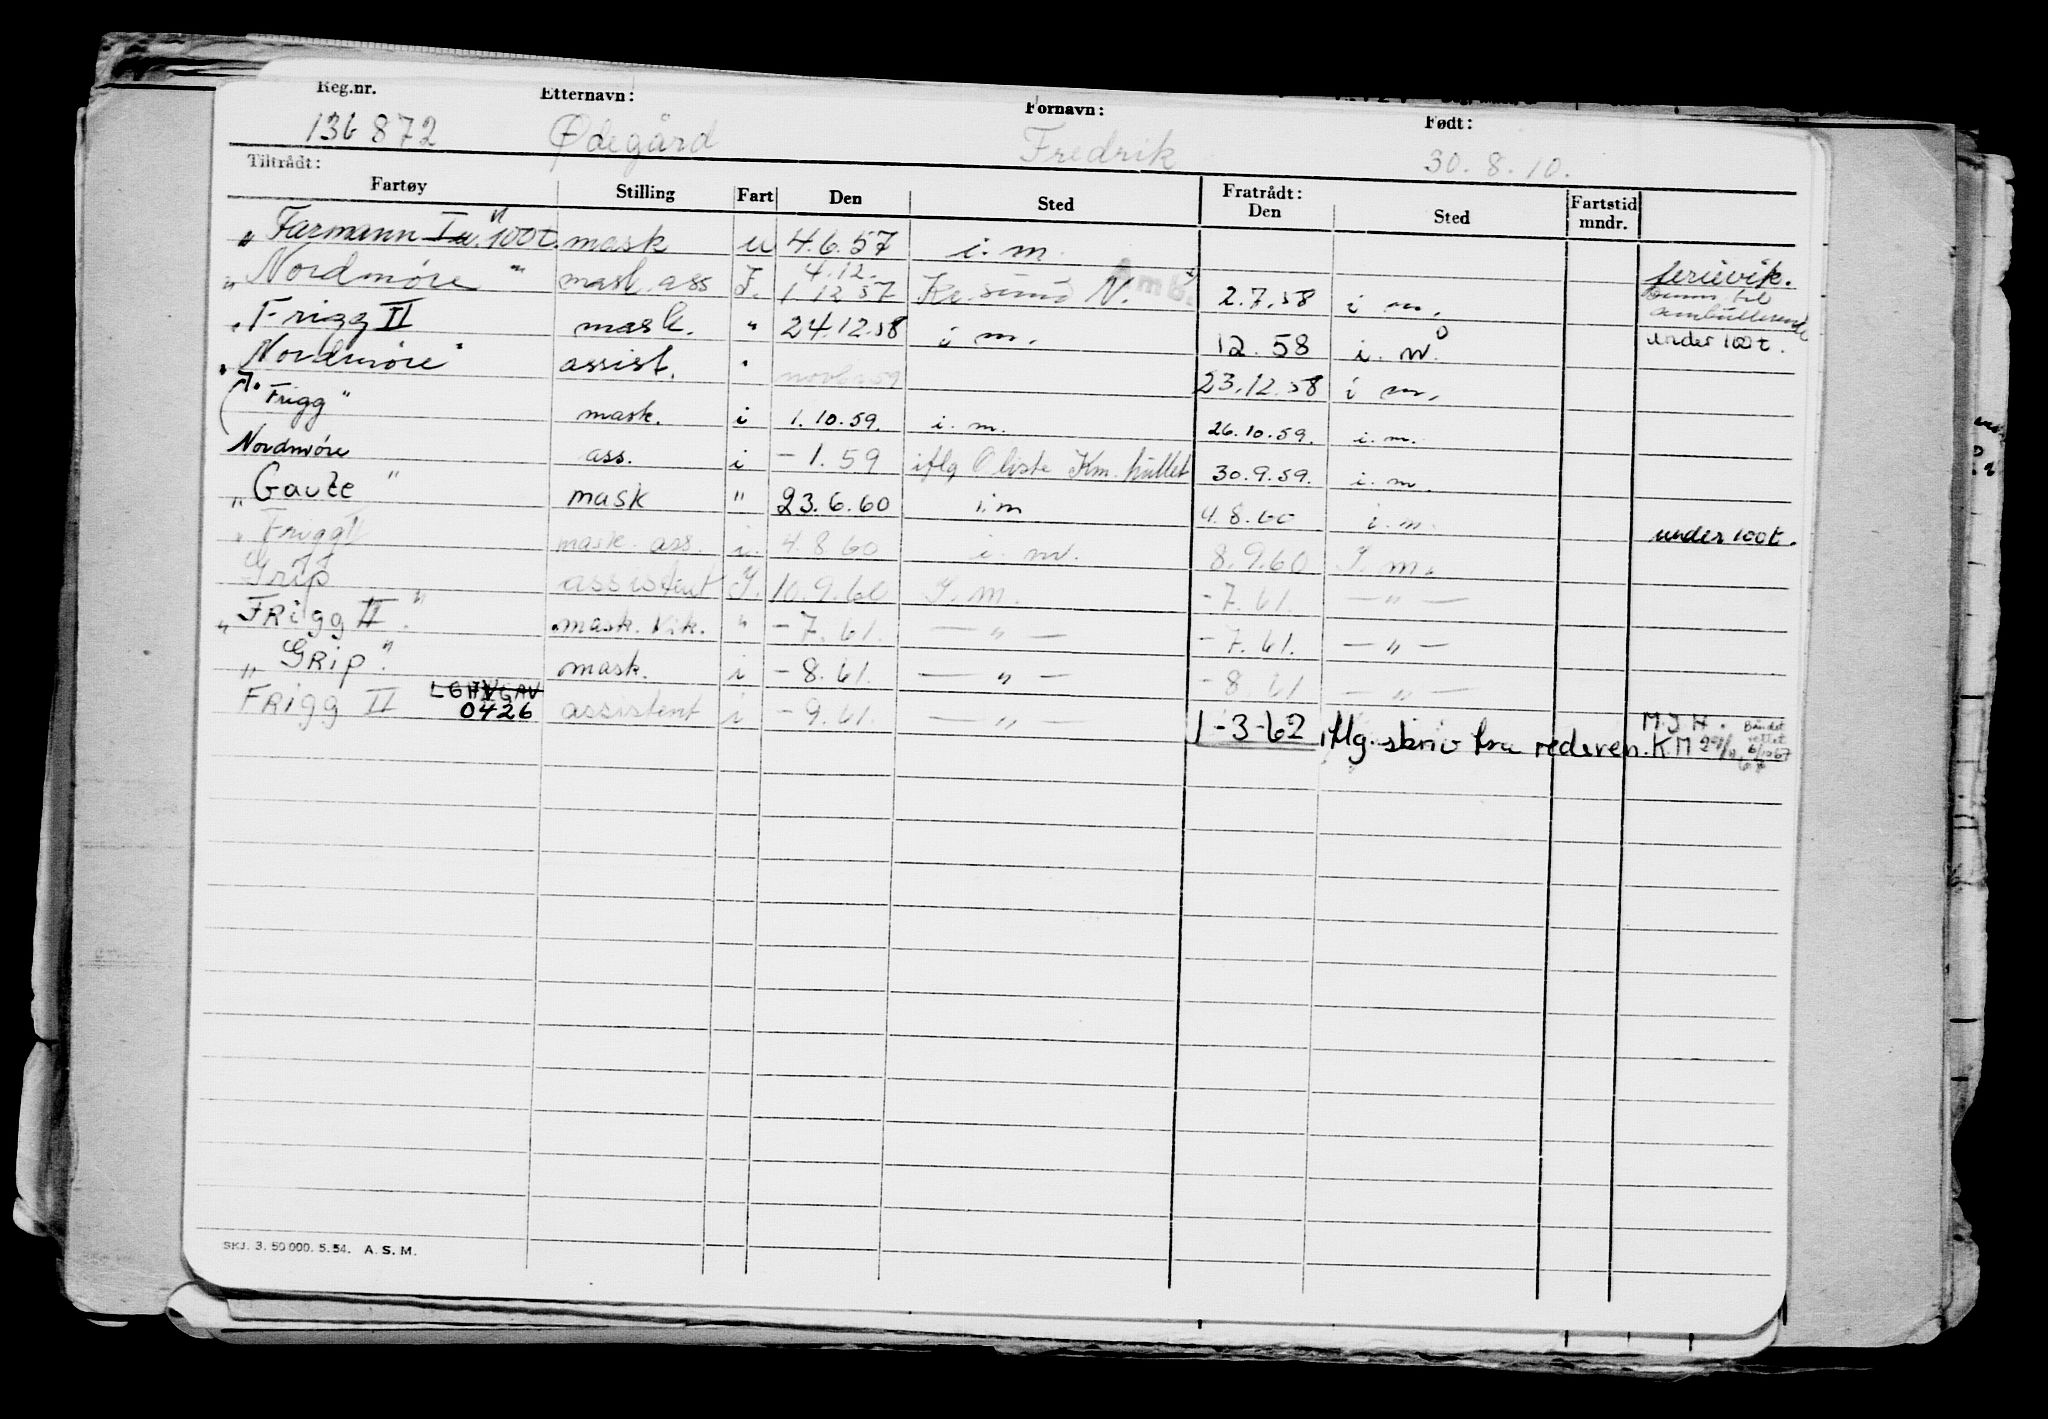 Reg.nr. Etternavn: Fornavn: Født:
136872 Ødegård Fredrik 30.8.10.
Tiltrådt: Fratrådt:
Fartøy Stilling Fart Den Sted Den Sted Fartstid mndr.
"Farmann I" u. 100t. mask u 4.6.57 i.m. ferievik.
"Nordmøre" mask ass I. 4.12. 1.12.57 Kr.sund N. Amb. 2.7.58 i m, til ambulerende
"Frigg II mask. " 24.12.58 i m. 12.58 i.m. under 100t.
"Nordmøre" assist. " novbr 59 23.12.58 i m,
"Frigg" mask. i 1.10.59. i.m. 26.10.59. i.m.
Nordmøre ass. i -1.59 iflg O liste Km. hullet 30.9.59. i.m.
"Gaute" mask " 23.6.60 i.m 4.8.60 i.m.
"Frigg I mask. ass. i. 4.8.60 i.m. 8.9.60 I.m. under 100t.
Grip assistent I. 10.9.60 I.m. -7.61. — " —
"FRigg II". mask. vik. " -7.61. — " — -7.61. — " —
"GRip". mask. i -8.61. — " — -8.61 — " —
FRigg II 0426 assistent i -9.61. — " — 1-3-62 iflg. skriv fra rederen. M.J.H. K.M
SKJ. 3. 50 000. 5.54. A.S.M.